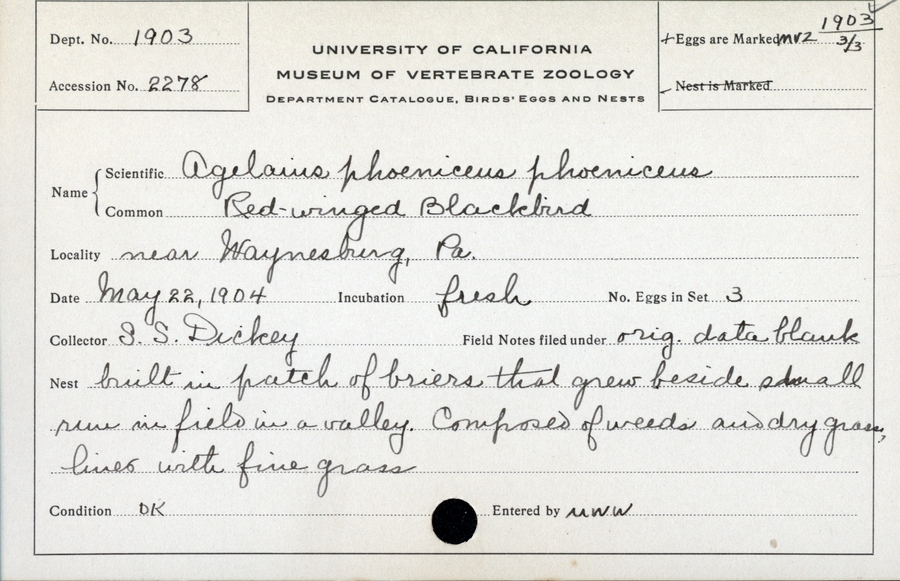 Dept. No. 1903
Accession No. 2278
UNIVERSITY OF CALIFORNIA
MUSEUM OF VERTEBRATE ZOOLOGY
DEPARTMENT CATALOGUE, BIRDS' EGGS AND NESTS
+Eggs are Marked MVZ 1903 3/3
Nest is Marked
Name
Scientific Agelaius phoeniceus phoeniceus
Common Red-winged Blackbird
Locality near Waynesburg, Pa.
Date May 22, 1904 Incubation fresh No. Eggs in Set 3
Collector S. S. Dickey Field Notes filed under orig. data blank
Nest built in patch of briers that grew beside small
run in field in a valley. Composed of weeds and dry grass,
lined with fine grass
Condition OK Entered by MWW